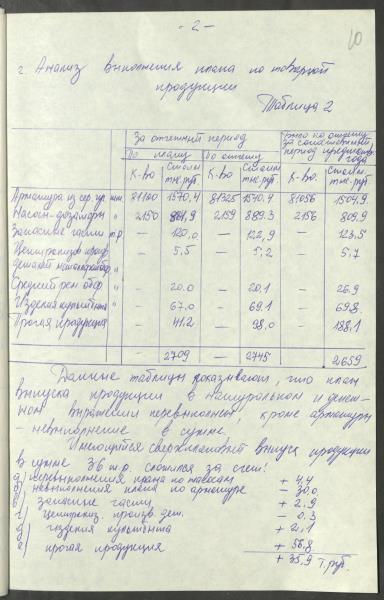 - 2 -
10
2. Анализ выполнения плана по товарной
продукции
Таблица 2
За отчетный период
Было по отчету
за соответствен.
период предыдущ.
года
По плану
По отчету
К-во
Стоим. тыс. руб.
К-во
Стоим. тыс. руб.
К-во
Стоим. тыс. руб.
Арматура из сер. чуг. 81100 1570,4 81325 1540,4 81056 1504,9
Насосы-дозаторы " 2150 884,9 2159 889.3 2156 809,9
Запасные части т.р — 120,0 — 122,9 — 123,5
" — 5,5 — 5,2 — 5,7
Средний рем. обор. " — 20.0 — 20.1 — 26.9
Изделия культбыта " — 67.0 — 69.1 — 69.8
Прочая продукция " — 41,2 — 98,0 — 188,1
— 2709 — 2745 2659
Данные таблицы показывают, что план
выпуска продукции в натуральном и денеж-
ном выражении перевыполнены, кроме арматуры
- невыполнение в сумме.
Имеющийся сверхплановый выпуск продукции
в сумме 36 т.р. сложился за счет:
а) перевыполнения плана по насосам + 4,4
б) невыполнения плана по арматуре - 30,0
в) запасные части + 2,9
г) произв. дет. - 0.3
д) изделия культбыта + 2,1
е) прочая продукция + 56,8
+ 35,9 т.руб.